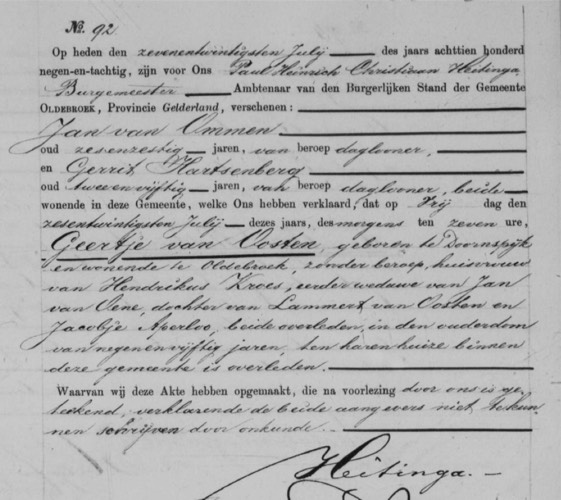 No. 92
Op heden den zevenentwintigsten July des jaars achttien honderd
negen-en-tachtig, zijn voor Ons Paul Heinrich Christiaan Heitinga
Burgemeester Ambtenaar van den Burgerlijken Stand der Gemeente
OLDEBROEK, Provincie Gelderland, verschenen:
Jan van Ommen
oud zesenzestig jaren, van beroep daglooner,
en Gerrit Hartsenberg
oud tweeenvijftig jaren, van beroep daglooner, beide
wonende in deze Gemeente, welke Ons hebben verklaard, dat op Vrij dag den
zesentwintigsten July dezes jaars, des morgens ten zeven ure,
Geertje van Oosten, geboren te Doornspijk
en wonende te Oldebroek, zonder beroep, huisvrouw
van Hendrikus Kroes, eerder weduwe van Jan
van Oene, dochter van Lammert van Oosten en
Jacobje Aperloo, beide overleden, in den ouderdom
van negenenvijftig jaren, ten haren huize binnen
deze gemeente is overleden.
Waarvan wij deze Akte hebben opgemaakt, die na voorlezing door ons is ge-
teekend, verklarende de beide aangevers niet te kun-
nen schrijven door onkunde.
Heitinga.